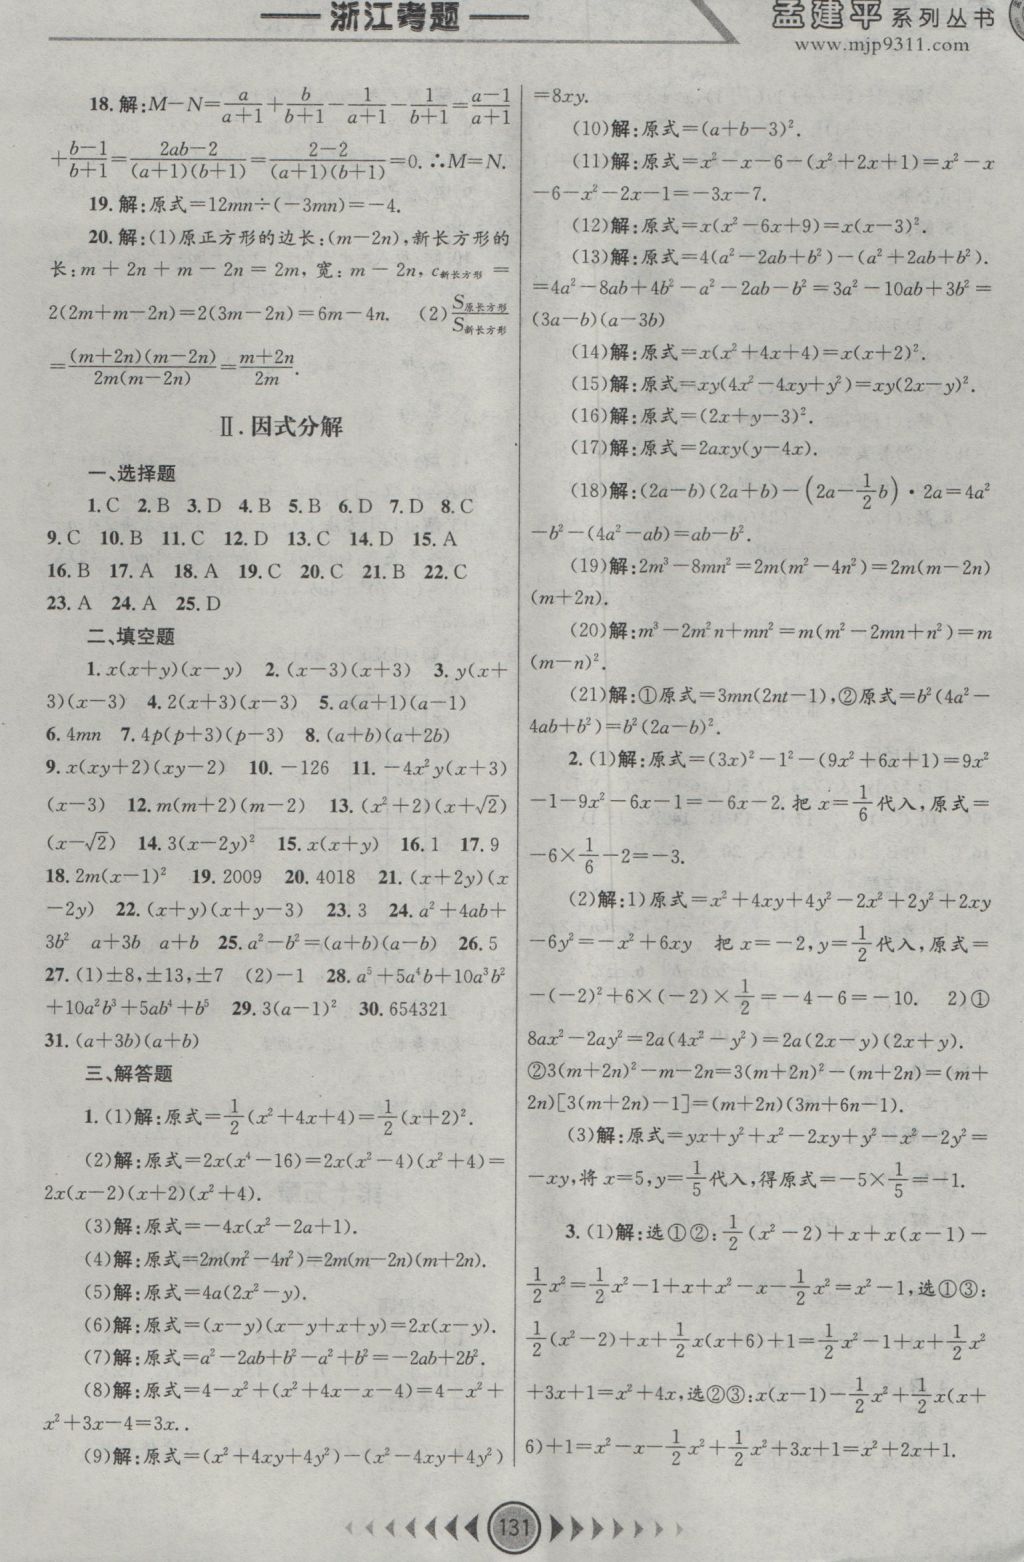 浙江考题
孟建平系列丛书
www.mjp9311.com
18.解:M－N=a/(a+1)+b/(b+1)－1/(a+1)－1/(b+1)=(a－1)/(a+1)
+(b－1)/(b+1)=(2ab－2)/((a+1)(b+1))=(2－2)/((a+1)(b+1))=0.∴M=N.
19.解:原式=12mn÷(－3mn)=－4.
20.解:(1)原正方形的边长:(m－2n),新长方形的
长:m+2n+m－2n=2m,宽:m－2n,c新长方形=
2(2m+m－2n)=2(3m－2n)=6m－4n. (2)S原长方形/S新长方形
=(m+2n)(m－2n)/(2m(m－2n))=(m+2n)/(2m).
Ⅱ.因式分解
一、选择题
1.C 2.B 3.D 4.B 5.B 6.D 7.D 8.C
9.C 10.B 11.C 12.D 13.C 14.D 15.A
16.B 17.A 18.A 19.C 20.C 21.B 22.C
23.A 24.A 25.D
二、填空题
1.x(x+y)(x－y) 2.(x－3)(x+3) 3.y(x+
3)(x－3) 4.2(x+3)(x－3) 5.a(a+1)(a－1)
6.4mn 7.4p(p+3)(p－3) 8.(a+b)(a+2b)
9.x(xy+2)(xy－2) 10.－126 11.－4x²y(x+3)
(x－3) 12.m(m+2)(m－2) 13.(x²+2)(x+√2)
(x－√2) 14.3(x－2y)² 15.x(x+y) 16.1 17.9
18.2m(x－1)² 19.2009 20.4018 21.(x+2y)(x
－2y) 22.(x+y)(x+y－3) 23.3 24.a²+4ab+
3b² a+3b a+b 25.a²－b²=(a+b)(a－b) 26.5
27.(1)±8,±13,±7 (2)－1 28.a⁵+5a⁴b+10a³b²
+10a²b³+5ab⁴+b⁵ 29.3(a－1)² 30.654321
31.(a+3b)(a+b)
三、解答题
1.(1)解:原式=1/2(x²+4x+4)=1/2(x+2)².
(2)解:原式=2x(x⁴－16)=2x(x²－4)(x²+4)=
2x(x－2)(x+2)(x²+4).
(3)解:原式=－4x(x²－2a+1).
(4)解:原式=2m(m²－4n²)=2m(m－2n)(m+2n).
(5)解:原式=4a(2x²－y).
(6)解:原式=(x－y)(x－y+x+y)=2x(x－y).
(7)解:原式=a²－2ab+b²－a²+b²=－2ab+2b².
(8)解:原式=4－x²+(x²+4x－x－4)=4－x²+
x²+3x－4=3x..
(9)解:原式=(x²+4xy+4y²)－(x²－4xy+4y²)
=8xy.
(10)解:原式=(a+b－3)².
(11)解:原式=x²－x－6－(x²+2x+1)=x²－x
－6－x²－2x－1=－3x－7.
(12)解:原式=x(x²－6x+9)=x(x－3)².
(13)解:原式=4(a²－2ab+b²)－(a²+2ab+b²).
=4a²－8ab+4b²－a²－2ab－b²=3a²－10ab+3b²=
(3a－b)(a－3b)
(14)解:原式=x(x²+4x+4)=x(x+2)².
(15)解:原式=xy(4x²－4xy+y²)=xy(2x－y)².
(16)解:原式=(2x+y－3)².
(17)解:原式=2axy(y－4x).
(18)解:(2a－b)(2a+b)－(2a－1/2b)·2a=4a²
－b²－(4a²－ab)=ab－b².
(19)解:2m³－8mn²=2m(m²－4n²)=2m(m－2n)
(m+2n).
(20)解:m³－2m²n+mn²=m(m²－2mn+n²)=m
(m－n)².
(21)解:①原式=3mn(2nt－1),②原式=b²(4a²－
4ab+b²)=b²(2a－b)².
2.(1)解:原式=(3x)²－1²－(9x²+6x+1)=9x²
－1－9x²－6x－1=－6x－2.把x=1/6代入,原式=
－6×1/6－2=－3.
(2)解:1)原式=x²+4xy+4y²－2x²+2y²+2xy
－6y²=－x²+6xy 把x=－2,y=1/2代入,原式=
－(－2)²+6×(－2)×1/2=－4－6=－10. 2)①
8ax²－2ay²=2a(4x²－y²)=2a(2x－y)(2x+y).
②3(m+2n)²－m－2n=3(m+2n)²－(m+2n)=(m+
2n)[3(m+2n)－1]=(m+2n)(3m+6n－1).
(3)解:原式=yx+y²+x²－2xy+y²－x²－2y²=
－xy,将x=5,y=1/5代入,得原式=－5×1/5=－1.
3.(1)解:选①②:1/2(x²－2)+x+x(x－1)－
1/2x²=1/2x²－1+x+x²－x－1/2x²=x²－1,选①③:
1/2(x²－2)+x+1/2x(x+6)+1=1/2x²－1+x+1/2x²
+3x+1=x²+4x,选②③:x(x－1)－1/2x²+1/2x(x+
6)+1=x²－x－1/2x²+1/2x²+3x+1=x²+2x+1.
131